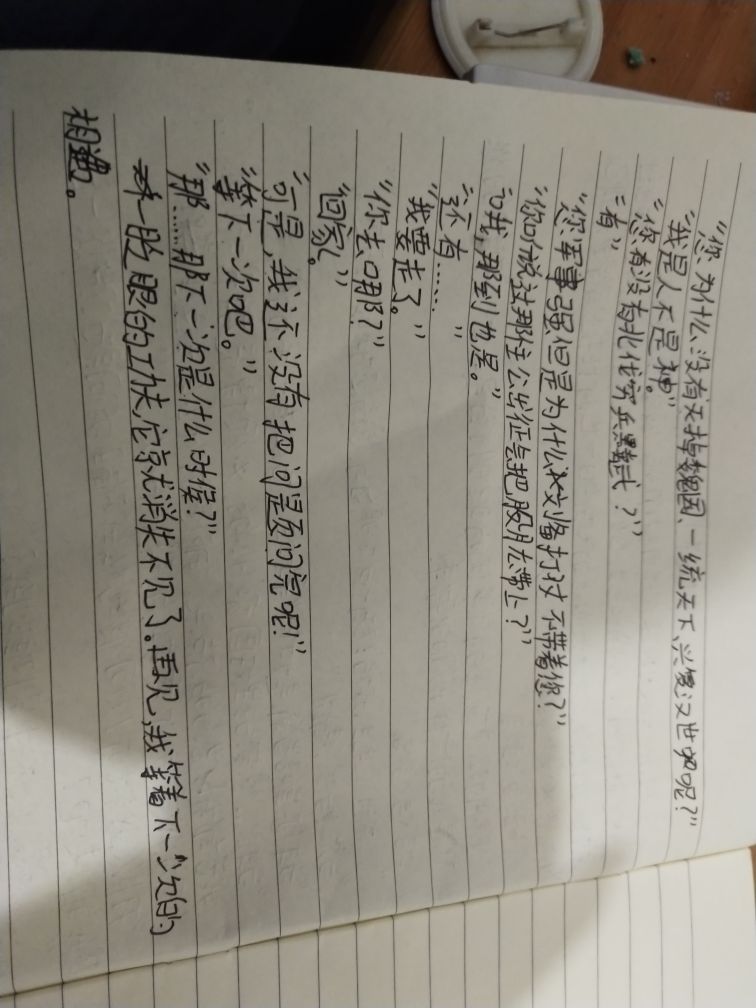 "您为什么没有灭掉魏国、一统天下、兴复汉世呢?"
"我是人不是神"。
"您有没有北伐穷兵黩武?"
"有"
"您军事强但是为什么刘备打对不带着你?"
"你听说过那住公出征气把股肱带上?"
"哦,那到也是。"
"还有……"
"我要走了。"
"你去哪?"
"回家。"
"可是,我还没有把问是页问完呢!"
"等下一次吧。"
"那……那下一次是什么时候?"
一眨眼的工夫,它就消失不见了。再见,我等着下一次的
相遇。